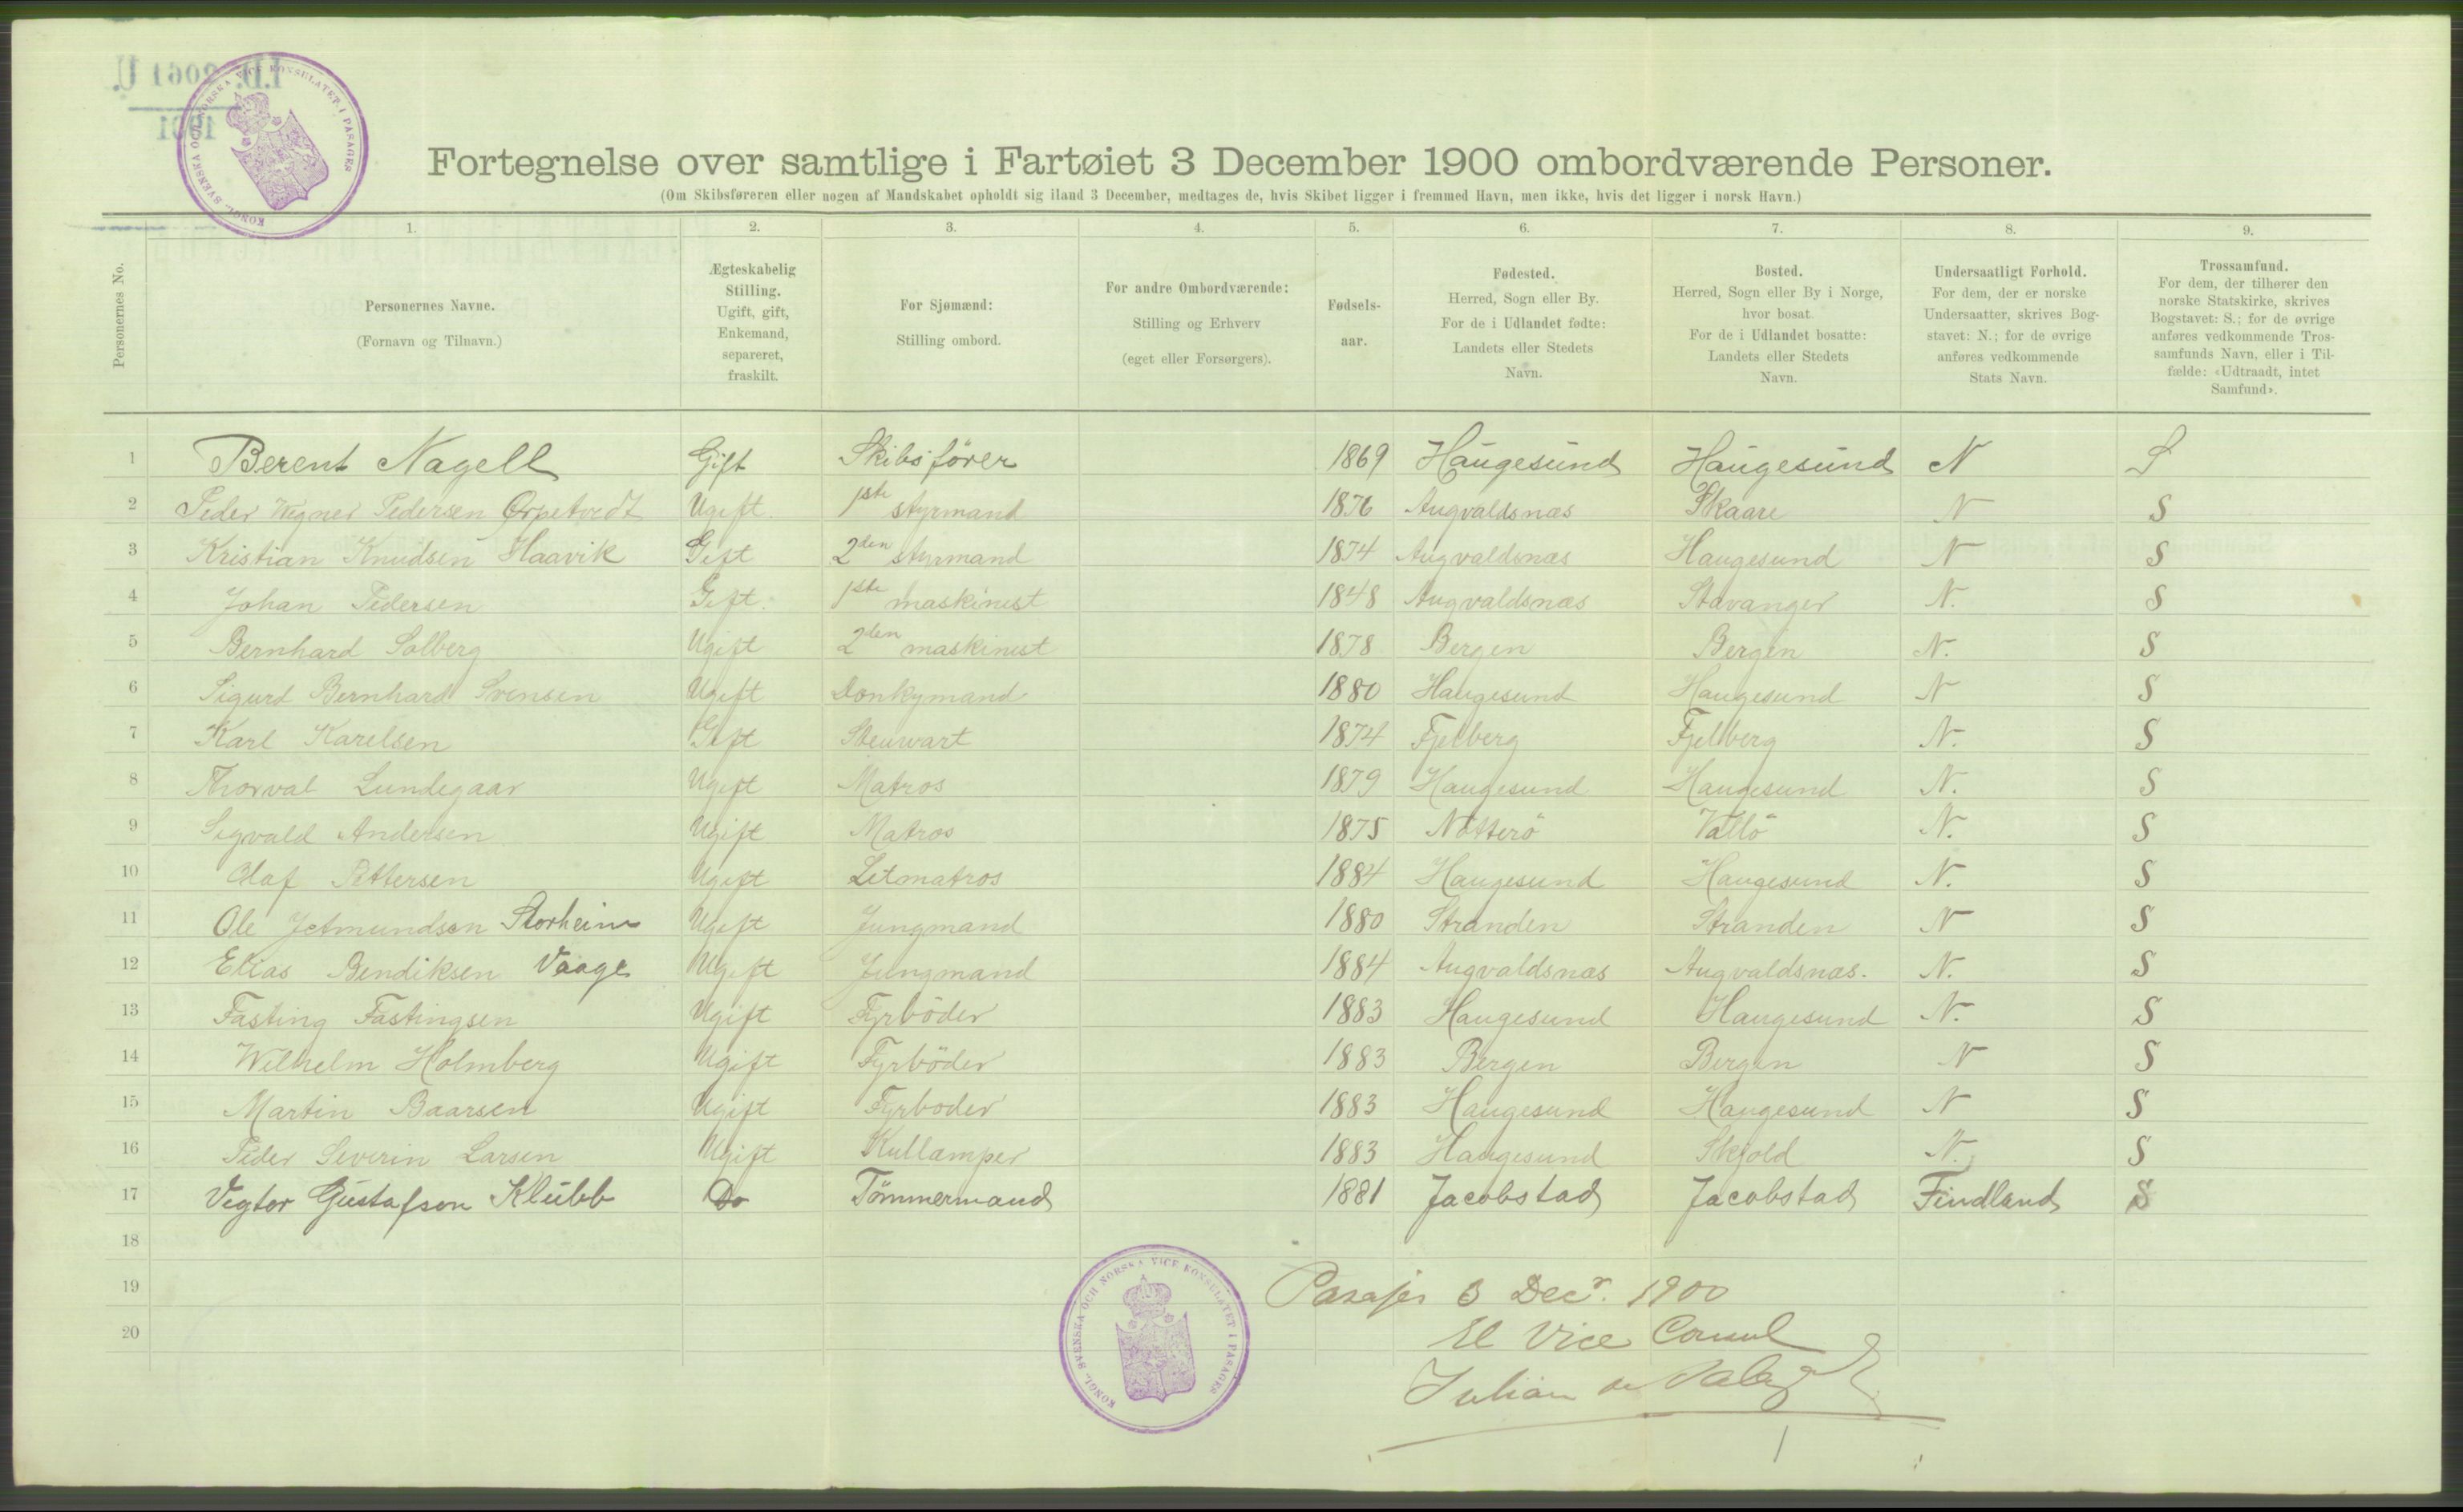 KONGL. SVENSKA OCH NORSKA VICE KONSULATET I PASAGES
Fortegnelse over samtlige i Fartøiet 3 December 1900 ombordværende Personer.
(Om Skibsføreren eller nogen af Mandskabet opholdt sig iland 3 December, medtages de, hvis Skibet ligger i fremmed Havn, men ikke, hvis det ligger i norsk Havn.)
1. 2. 3. 4. 5. 6. 7. 8. 9.
Personernes No.
Personernes Navne.
(Fornavn og Tilnavn.)
Ægteskabelig
Stilling.
Ugift, gift,
Enkemand,
separeret,
fraskilt.
For Sjømænd:
Stilling ombord.
For andre Ombordværende:
Stilling og Erhverv
(eget eller Forsørgers).
Fødsels-
aar.
Fødested.
Herred, Sogn eller By.
For de i Udlandet fødte:
Landets eller Stedets
Navn.
Bosted.
Herred, Sogn eller By i Norge,
hvor bosat.
For de i Udlandet bosatte:
Landets eller Stedets
Navn.
Undersaatligt Forhold.
For dem, der er norske
Undersaatter, skrives Bog-
stavet: N.; for de øvrige
anføres vedkommende
Stats Navn.
Trossamfund.
For dem, der tilhører den
norske Statskirke, skrives
Bogstavet: S.; for de øvrige
anføres vedkommende Tros-
samfunds Navn, eller i Til-
fælde: «Udtraadt, intet
Samfund».
1 Berent Nagell Gift Skibsförer 1869 Haugesund Haugesund N S
2 Peder Wegner Pedersen Ørpetvedt Ugift. 1ste styrmand 1876 Augvaldsnæs Skaare N S
3 Kristian Knudsen Haavik Gift 2den styrmand 1874 Augvaldsnæs Haugesund N S
4 Johan Pedersen Gift. 1ste maskinist 1848 Augvaldsnæs Stavanger N. S
5 Bernhard Solberg Ugift 2den maskinist 1878 Bergen Bergen N. S
6 Sigurd Bernhard Svensen Ugift Donkymand 1880 Haugesund Haugesund N S
7 Karl Karelsen Gift Steuwart 1874 Fjelberg Fjelberg N. S
8 Thorval Lundegaar Ugift Matros 1879 Haugesund Haugesund N. S
9 Sigvald Andersen Ugift Matros 1875 Nötterö Vallö N. S
10 Olaf Pettersen Ugift Letmatros 1884 Haugesund Haugesund N. S
11 Ole Jetmundsen Storheim Ugift Jungmand 1880 Stranden Stranden N S
12 Elias Bendiksen Vaage Ugift Jungmand 1884 Augvaldsnæs Augvaldsnæs. N. S
13 Fasting Fastingsen Ugift Fyrböder 1883 Haugesund Haugesund N. S
14 Wilhelm Holmberg Ugift Fyrböder 1883 Bergen Bergen N S
15 Martin Baarsen Ugift Fyrboder 1883 Haugesund Haugesund N S
16 Peder Severin Larsen Ugift Kullæmper 1883 Haugesund Skjold N. S
17 Vegtor Gustafson Klubb Do Tömmermand 1881 Jacobstad Jacobstad Findland S
18
19
20
Pasajes 3 Decr. 1900
El Vice Consul
Julian de
KONGL. SVENSKA OCH NORSKA VICE KONSULATET I PASAGES